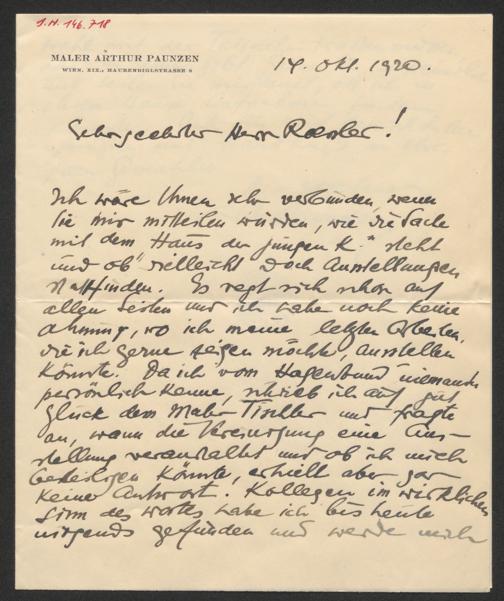 J.N. 146.718
MALER ARTHUR PAUNZEN
WIEN, XIX., HAUBENBIGLSTRASSE 8
14. Okt. 1920.
Sehrgeehrter Herr Roessler!
Ich wäre Ihnen sehr verbunden, wenn
Sie mir mitteilen würden, wie die Sache
mit dem Haus der jungen K." steht
und ob vielleicht doch Ausstellungen
stattfinden. Es regt sich schon auf
allen Seiten und ich habe noch keine
Ahnung, wo ich meine letzten Arbeiten,
die ich gerne zeigen möchte, ausstellen
könnte. Da ich vom Hagenbund niemanden
persönlich kenne, schrieb ich auf gut
Glück dem Maler Tischler und fragte
an, wann die Vereinigung eine Aus-
stellung veranstaltet und ob ich mich
beteiligen könnte, erhielt aber gar
keine Antwort. Kollegen im wirklichen
Sinn des Wortes habe ich bis heute
nirgends gefunden und werde mich